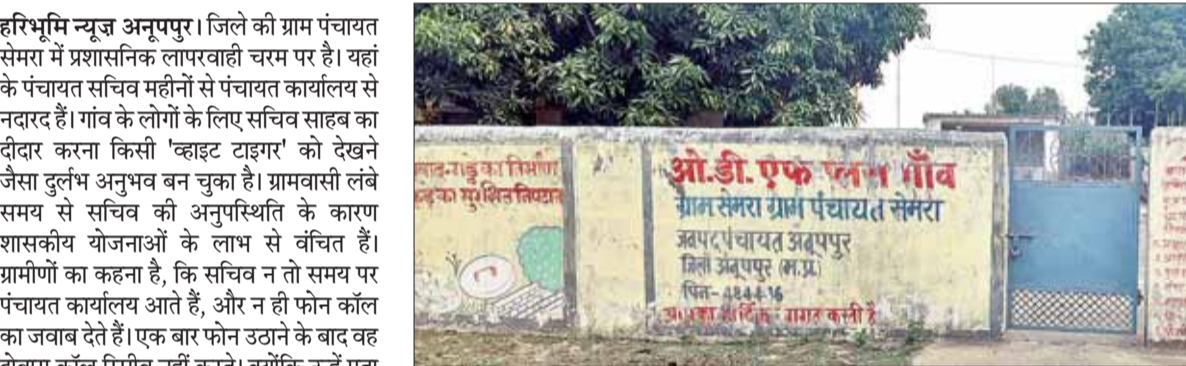 हरिभूमि न्यूज़ अनूपपुर। जिले की ग्राम पंचायत
सेमरा में प्रशासनिक लापरवाही चरम पर है। यहां
के पंचायत सचिव महीनों से पंचायत कार्यालय से
नदारद हैं। गांव के लोगों के लिए सचिव साहब का
दीदार करना किसी 'व्हाइट टाइगर' को देखने
जैसा दुर्लभ अनुभव बन चुका है। ग्रामवासी लंबे
समय से सचिव की अनुपस्थिति के कारण
शासकीय योजनाओं के लाभ से वंचित हैं।
ग्रामीणों का कहना है, कि सचिव न तो समय पर
पंचायत कार्यालय आते हैं, और न ही फोन कॉल
का जवाब देते हैं। एक बार फोन उठाने के बाद वह
का निर्माण
का सुरक्षित निपटान
ओ.डी.एफ प्लस गाँव
ग्राम सेमरा ग्राम पंचायत सेमरा
जनपद पंचायत अनूपपुर
जिला अनूपपुर (म.प्र.)
पिन- 484416